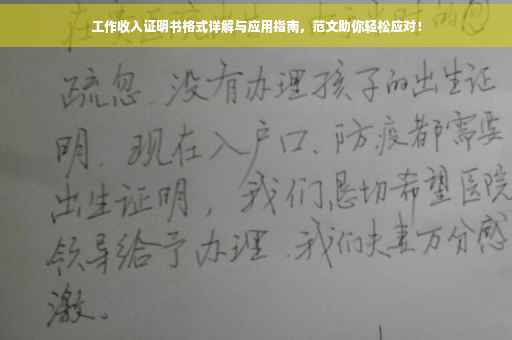 工作收入证明书格式详解与应用指南，范文助你轻松应对！
疏忽.没有办理孩子的出生证
明.现在入户口、防疫都需要
出生证明，我们恳切希望医院
领导给予办理.我们夫妻万分感
激。